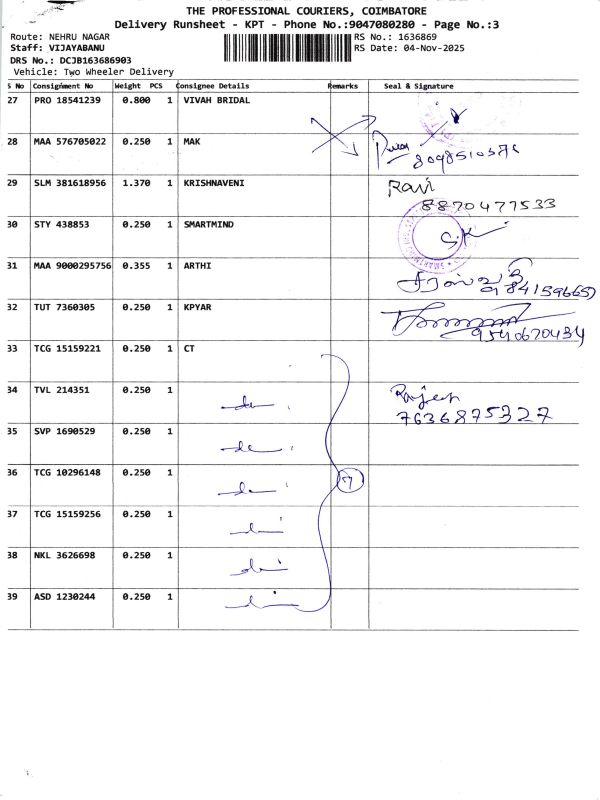 THE PROFESSIONAL COURIERS, COIMBATORE
Delivery Runsheet - KPT - Phone No.:9047080280 - Page No.:3
Route: NEHRU NAGAR RS No.: 1636869
Staff: VIJAYABANU RS Date: 04-Nov-2025
DRS No.: DCJB163686903
Vehicle: Two Wheeler Delivery
S No Consignment No Weight PCS Consignee Details Remarks Seal & Signature
27 PRO 18541239 0.800 1 VIVAH BRIDAL
28 MAA 576705022 0.250 1 MAK
29 SLM 381618956 1.370 1 KRISHNAVENI Ravi
8870477533
30 STY 438853 0.250 1 SMARTMIND S.K
31 MAA 9000295756 0.355 1 ARTHI
32 TUT 7360305 0.250 1 KPYAR
9540670434
33 TCG 15159221 0.250 1 CT
34 TVL 214351 0.250 1 Rajesh
7636875327
35 SVP 1690529 0.250 1
36 TCG 10296148 0.250 1
37 TCG 15159256 0.250 1
38 NKL 3626698 0.250 1
39 ASD 1230244 0.250 1